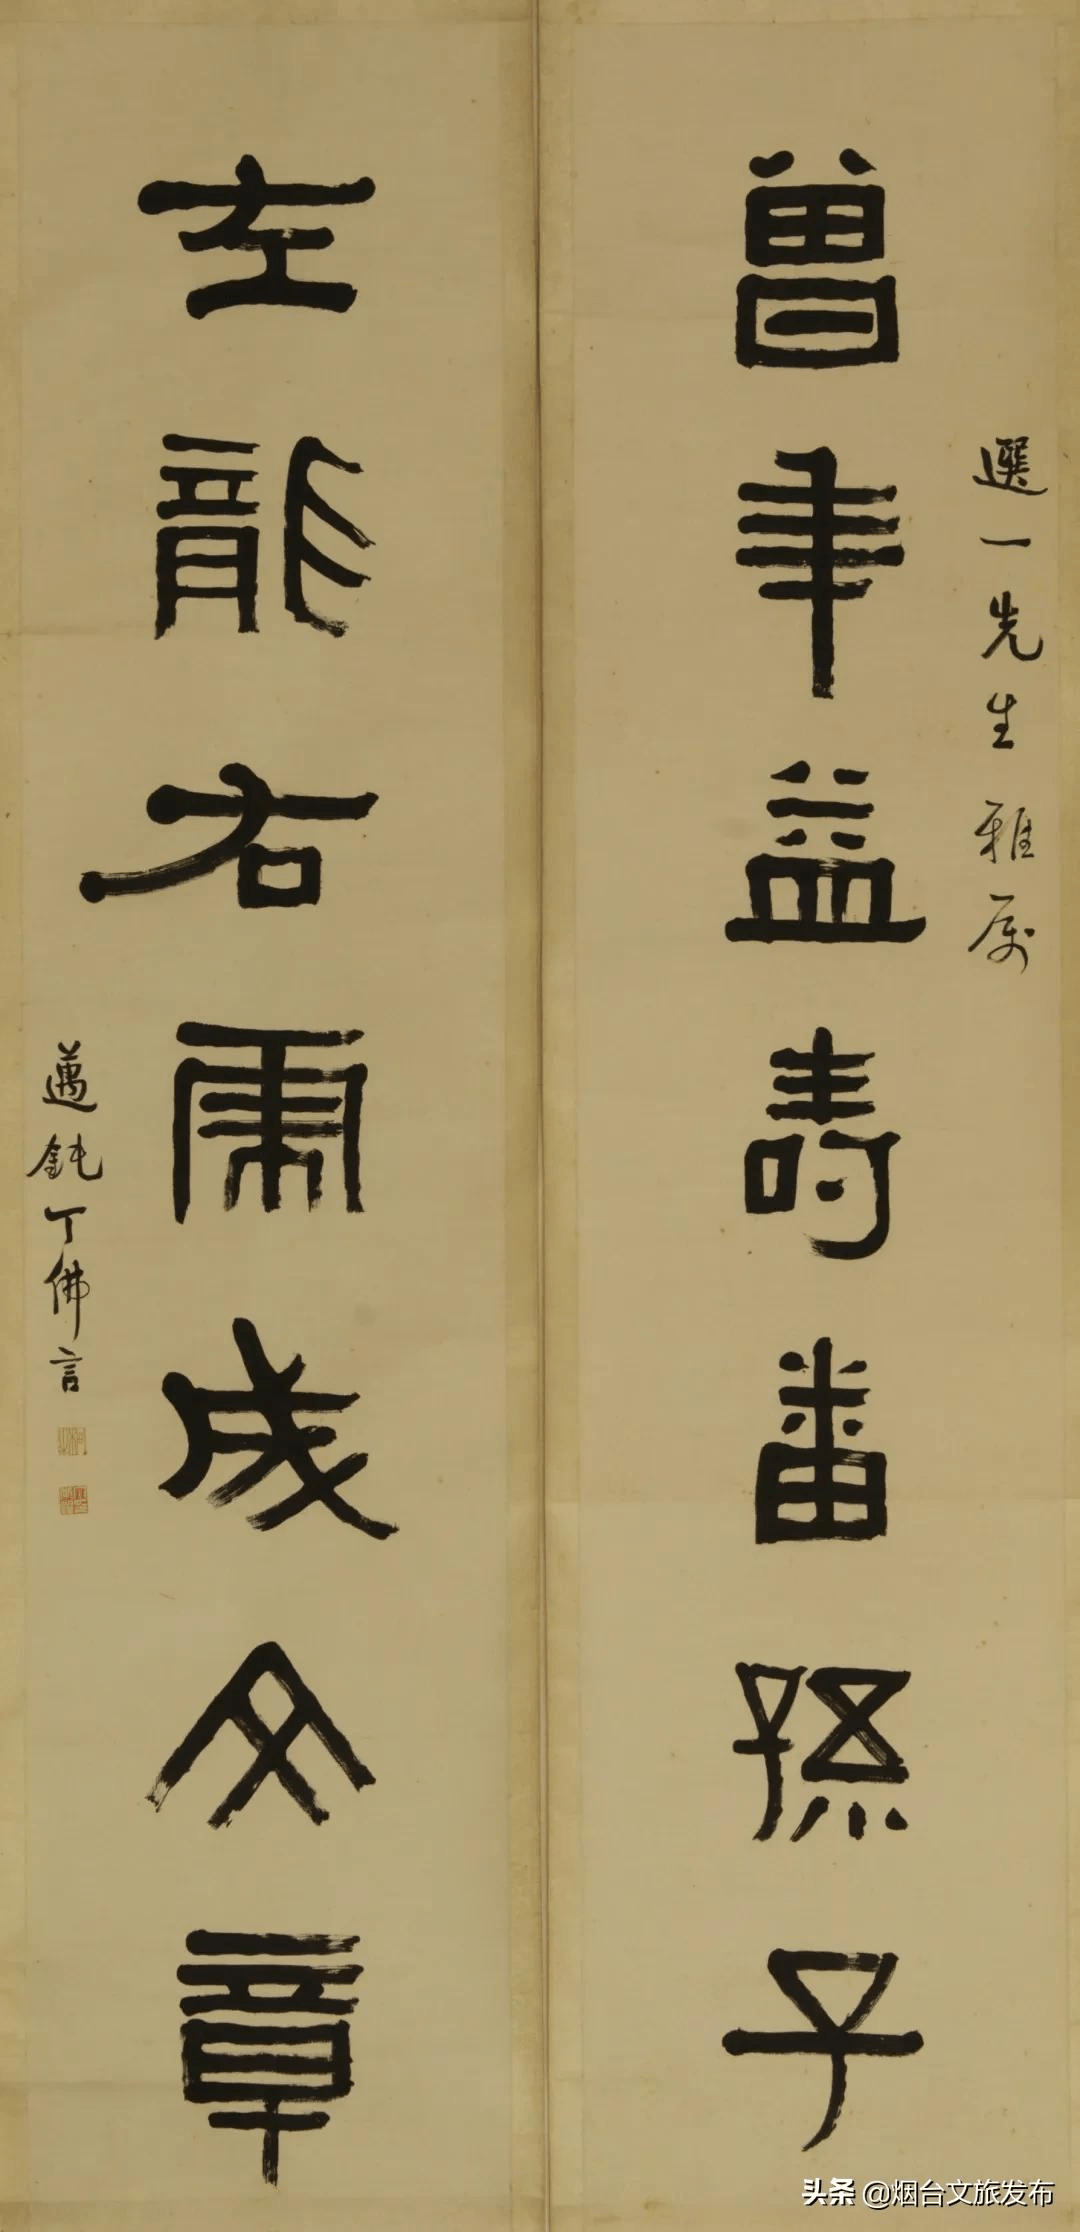 選一先生雅属
曾年益壽番孫子
左龍右虎成文章
邁鈍丁佛言
头条 @烟台文旅发布